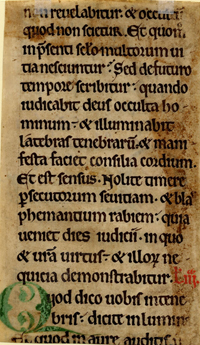 non reuelabitur · & occultū
quod non scietur. Et quom̄
in p̄senti sc̄lo multorum ui
tia nesciuntur · Sed de futuro
tempore scribitur · quando
iudicabit deus occulta ho
minum · & illuminabit
latebras tenebrarū · & mani
festa faciet consilia cordium.
Et est sensus · Nolite timere
p̄secutorum seuitiam · & blas
phemantium rabiem · quia
ueniet dies iudicii · in quo
& ur̄a uirtus · & illorū ne
quicia demonstrabitur.
Quod dico uobis in tene
bris · dicite in lumine
& quod in aure auditis